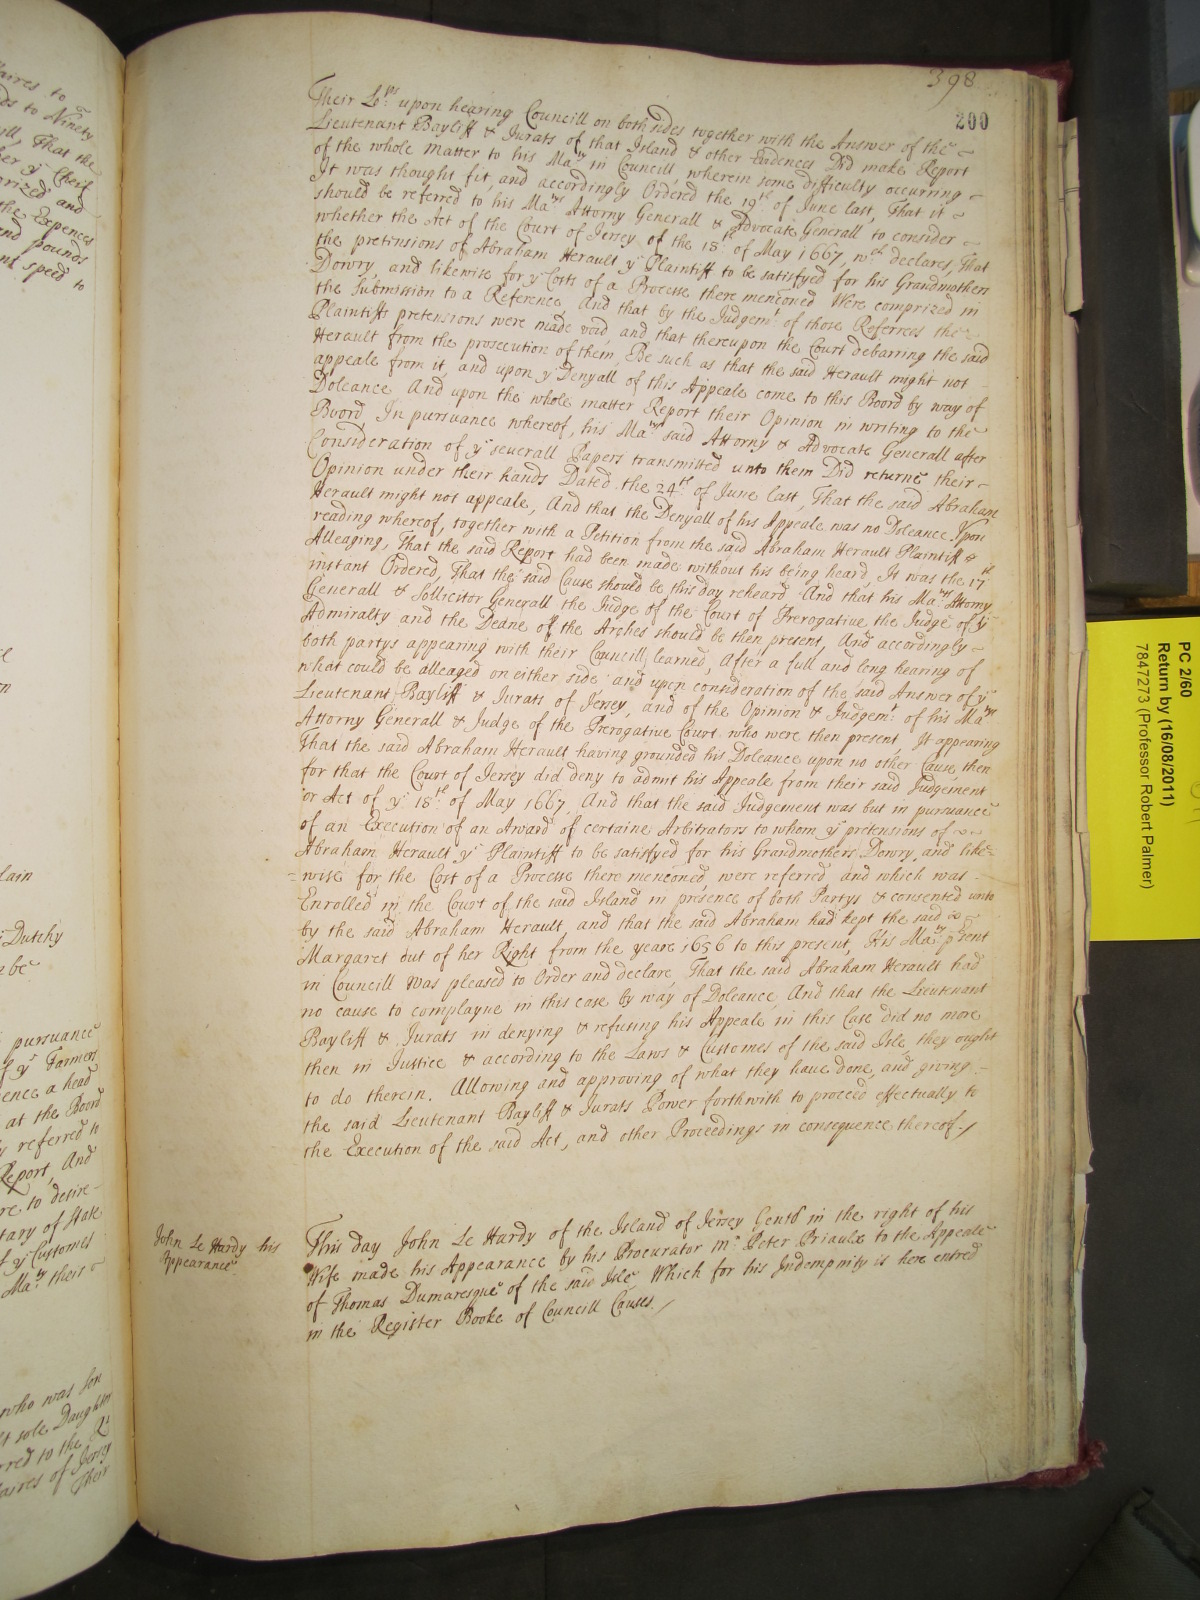 398
200
Their Lo.ps upon hearing Councill on both sides together with the Answer of the
Lieutenant Bayliff & Jurats of that Island & other Evidences Did make Report
of the whole Matter to his Ma.ty in Councill, wherein some difficulty occurring
It was thought fit, and accordingly Ordered the 19th of June last, That it
should be referred to his Ma.tys Attorny Generall & Advocate Generall to consider
whether the Act of the Court of Jersey of the 18th of May 1667, w.ch declares, That
the pretensions of Abraham Herault ye Plaintiff to be satisfyed for his Grandmothers
Dowry, and likewise for ye Costs of a Processe there menconed Were comprized in
the Submission to a Reference, And that by the Judgem.t of those Referrees the
Plaintiffs pretensions were made void, and that thereupon the Court debarring the said
Herault from the prosecution of them, Be such as that the said Herault might not
appeale from it, and upon ye Denyall of this Appeale come to this Board by way of
Doleance And upon the whole matter Report their Opinion in writing to the
Board, In pursuance whereof, his Ma.tys said Attorny & Advocate Generall after
Consideration of ye severall Papers transmitted unto them Did returne their
Opinion under their hands Dated the 24th of June last, That the said Abraham
Herault might not appeale, And that the Denyall of his Appeale was no Doleance Upon
reading whereof, together with a Petition from the said Abraham Herault Plaintiff
Alleaging, That the said Report had been made without his being heard, It was the 17th
instant Ordered, That the said Cause should be this day reheard And that his Ma.tys Attorny
Generall & Sollicitor Generall the Judge of the Court of Prerogative the Judge of ye
Admiralty and the Deane of the Arches should be then present, And accordingly
both partys appearing with their Councill learned, After a full and long hearing of
what could be alleaged on either side and upon consideration of the said Answer of ye
Lieutenant Bayliff & Jurats of Jersey, and of the Opinion & Judgem.t of his Ma.tys
Attorny Generall & Judge of the Prerogative Court who were then present, It appearing
That the said Abraham Herault having grounded his Doleance upon no other Cause, then
for that the Court of Jersey did deny to admit his Appeale from their said Judgement
or Act of ye 18th of May 1667. And that the said Judgement was but in pursuance
of an Execution of an Award of certaine Arbitrators to whom ye pretensions of
Abraham Herault ye Plaintiff to be satisfyed for his Grandmothers Dowry, and like-
=wise for the Cost of a Processe there menconed, were referred and which was
Enrolled in the Court of the said Island in presence of both Partys & consented unto
by the said Abraham Herault, and that the said Abraham had kept the said
Margaret out of her Right from the yeare 1656 to this present, His Ma.ty present
in Councill was pleased to Order and declare, That the said Abraham Herault had
no cause to complayne in this case by way of Doleance, And that the Lieutenant
Bayliff & Jurats in denying & refusing his Appeale in this Case did no more
then in Justice & according to the Laws & Customes of the said Isle they ought
to do therein. Allowing and approving of what they have done, and giving
the said Lieutenant Bayliff & Jurats Power forthwith to proceed effectually to
the Execution of the said Act, and other Proceedings in consequence thereof./
John Le Hardy his
Appearance
This day John Le Hardy of the Island of Jersey Gent in the right of his
Wife made his Appearance by his Procurator Mr. Peter Priaulx to the Appeale
of Thomas Dumaresque of the said Isle Which for his Indempnity is here entred
in the Register Booke of Councill Causes./
PC 2/60
Return by (16/08/2011)
7847273 (Professor Robert Palmer)
aires to
to Ninety
That the
ye Cheif
orized and
the Expences
pounds
speed to
lain
Dutchy
be
pursuance
ye Farmers
a head
at the Board
referred to
Report, And
to desire
tary of State
ye Customes
Ma.ty their
who was son
sole Daughter
to the
of Jersey
Their